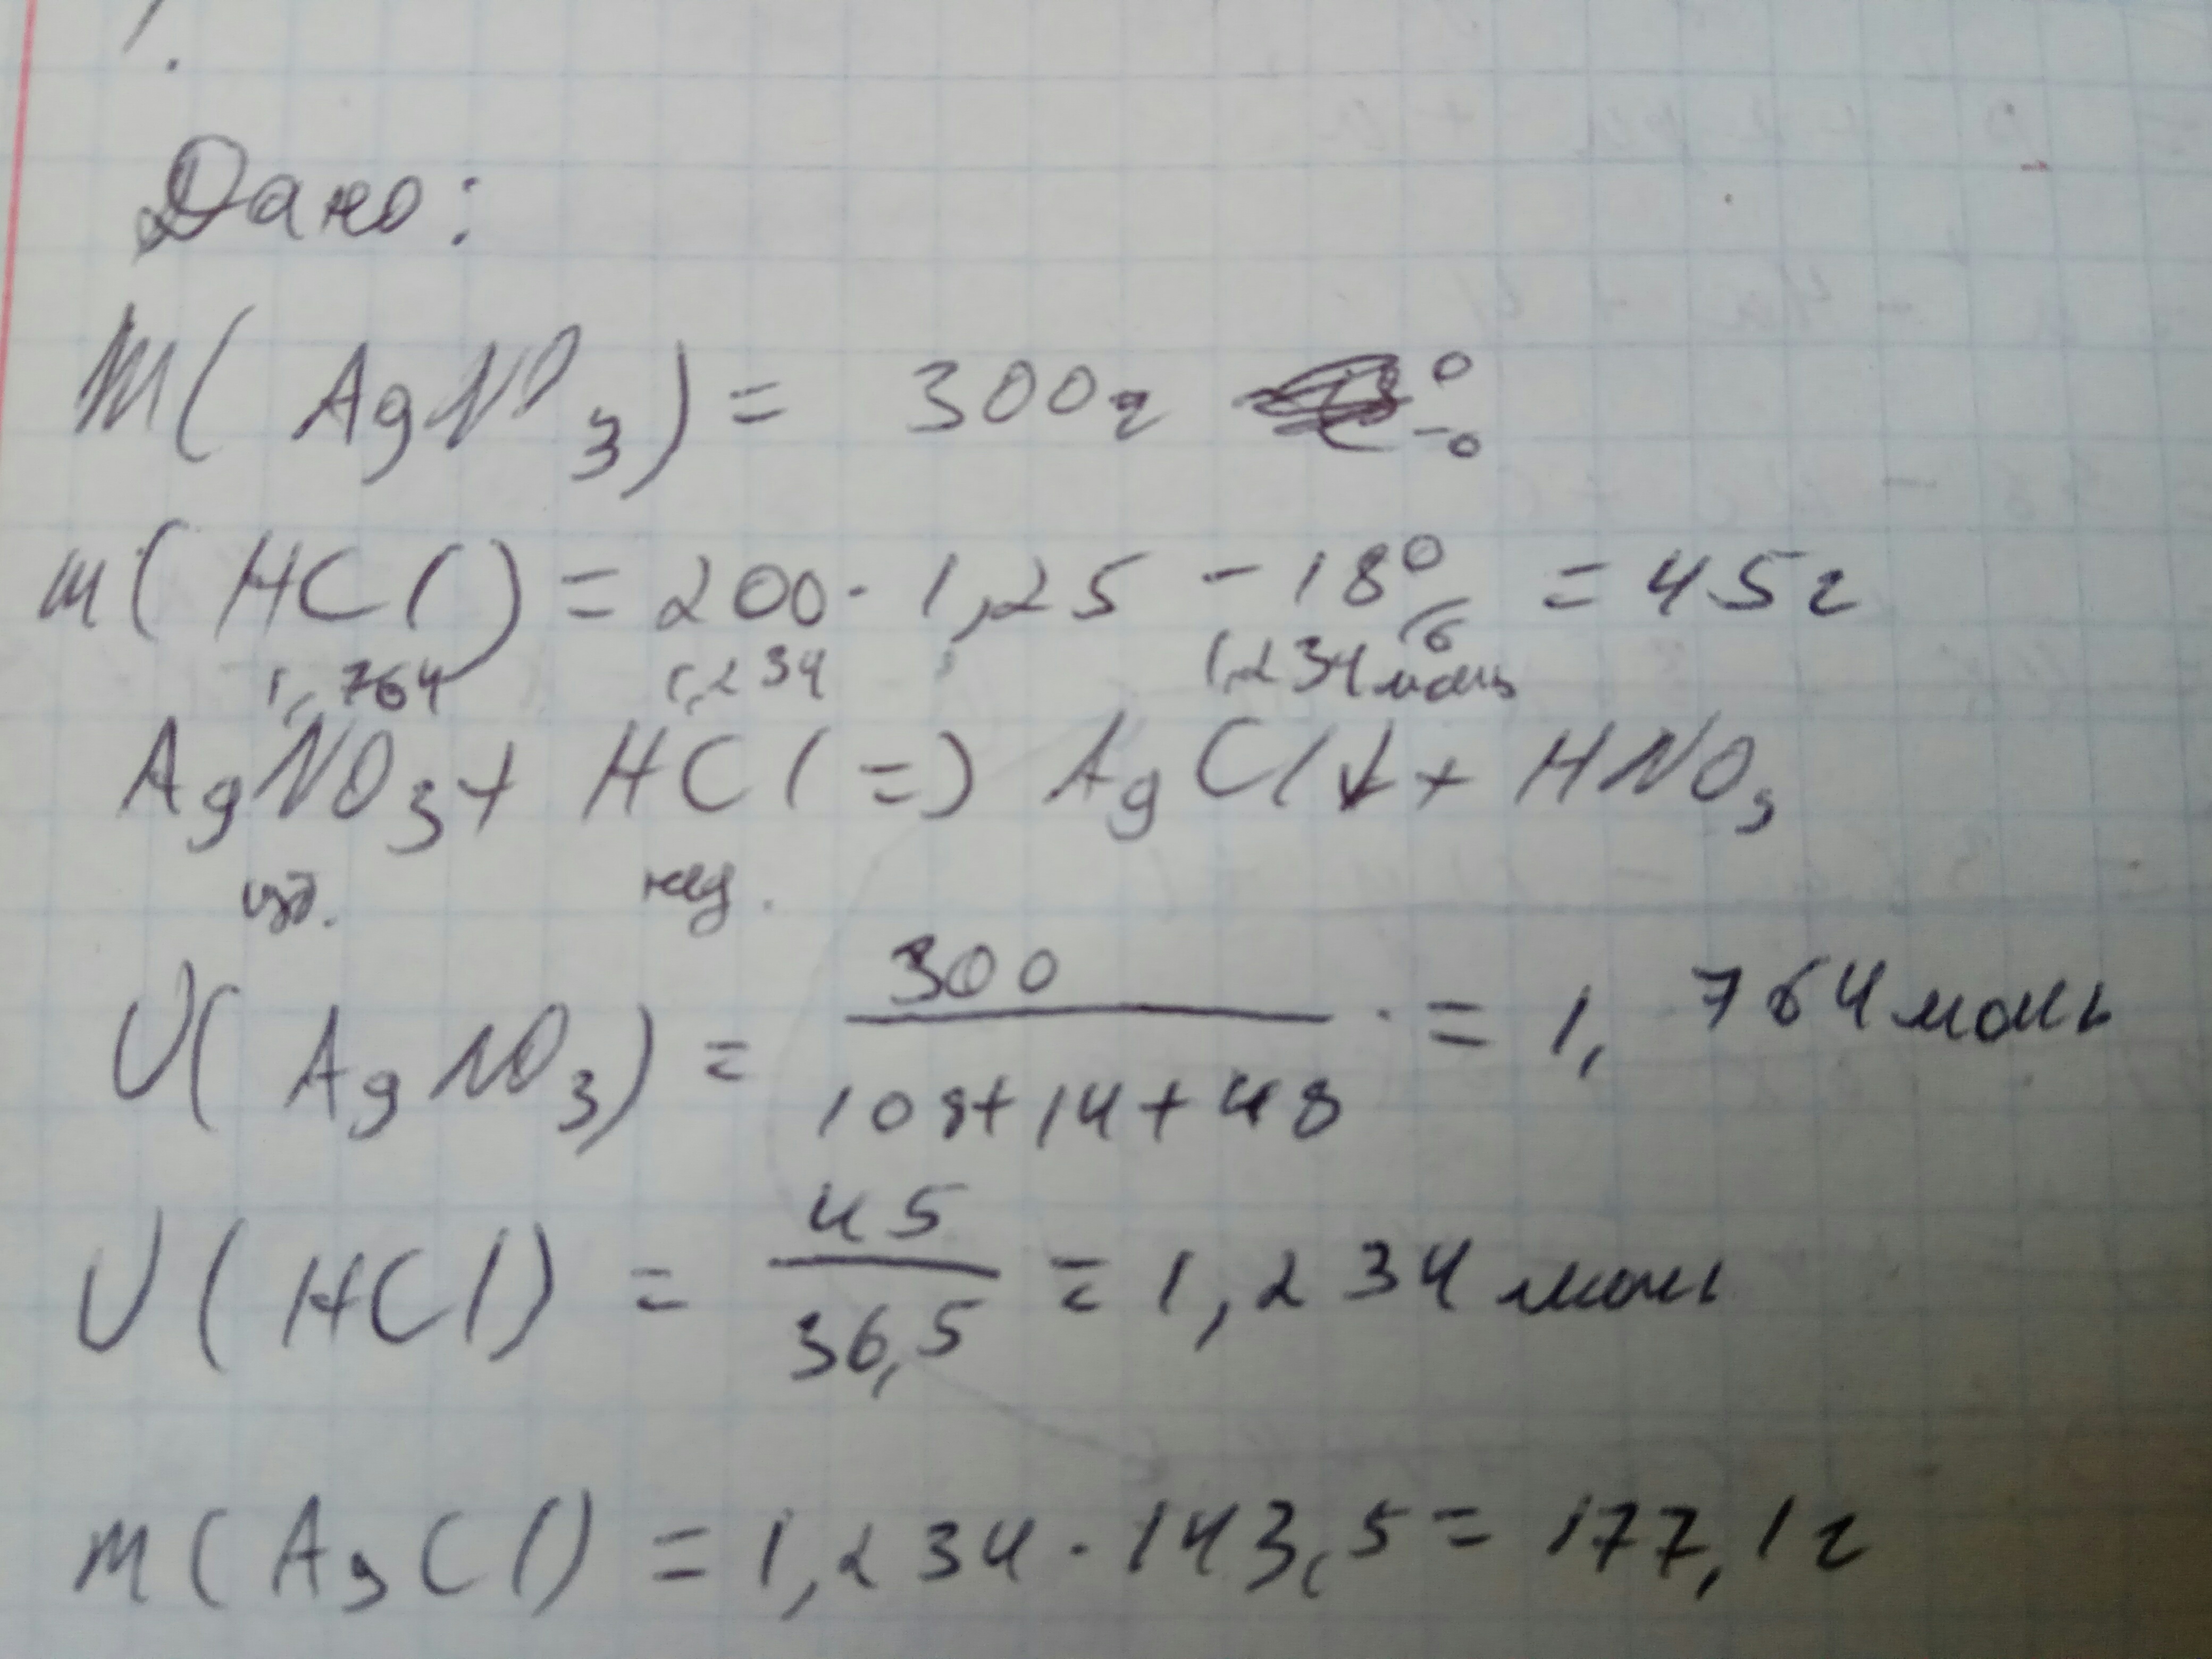 1.
Дано:
m(AgNO3) = 300г
m(HCl) = 200 · 1,25 - 18% = 45г
1,764 1,234 1,234 моль
AgNO3 + HCl (=) AgCl↓ + HNO3
изб. нед.
υ(AgNO3) = 300 / 108+14+48 · = 1,764 моль
υ(HCl) = 45 / 36,5 = 1,234 моль
m(AgCl) = 1,234 · 143,5 = 177,1г